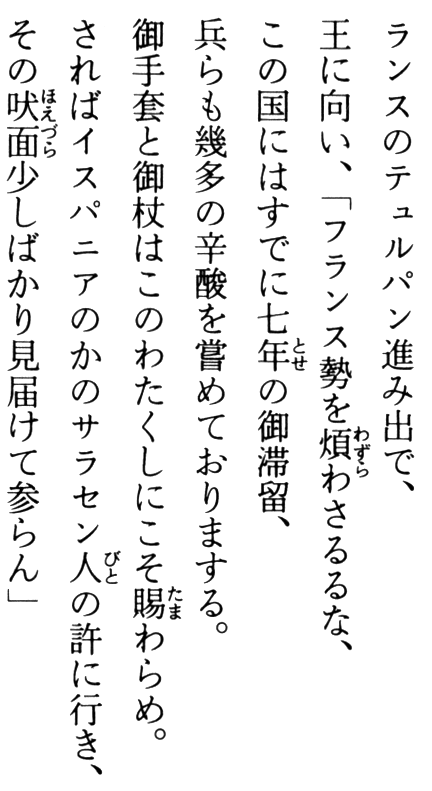 ランスのテュルパン進み出で、
王に向い、「フランス勢を煩わさるるな、
この国にはすでに七年の御滞留、
兵らも幾多の辛酸を嘗めておりまする。
御手套と御杖はこのわたくしにこそ賜わらめ。
さればイスパニアのかのサラセン人の許に行き、
その吠面少しばかり見届けて参らん」